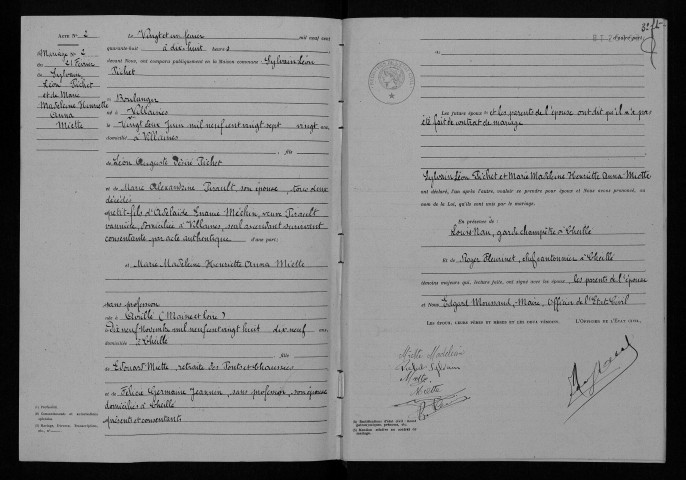 Acte N° 2
Mariage N° 2
du 21 Février
Sylvain
Léon Pichet
et de Marie
Madeleine Henriette
Anna
Miette
Le Vingt et un février mil neuf cent
quarante-huit à dix-huit heures
devant Nous, ont comparu publiquement en la Maison commune Sylvain Léon
Pichet
Boulanger
né à Villaines
le Vingt deux Juin mil neuf cent vingt sept vingt ans
domicilié à Villaines
fils
de Léon Auguste Désiré Pichet
et de Marie Alexandrine Pirault, son épouse, tous deux
décédés
petit-fils d'Adélaïde Méchin, veuve Pirault
vannière, domiciliée à Villaines, seul ascendant survivant
consentante par acte authentique d'une part;
et Marie Madeleine Henriette Anna Miette
sans profession
née à (Maine et Loire)
le Dix neuf Novembre mil neuf cent vingt huit dix neuf ans
domiciliée à Cheillé
fille
de Edouard Miette, retraité des Ponts et Chaussées
et de Félicie Germaine Jeannin, sans profession, son épouse
domiciliés à Cheillé
présents et consentants
d'autre part;
Les futurs époux et les parents de l'épouse ont dit qu'il n'a pas
été fait de contrat de mariage
Sylvain Léon Pichet et Marie Madeleine Henriette Anna Miette
ont déclaré, l'un après l'autre, vouloir se prendre pour époux et Nous avons prononcé, au
nom de la Loi, qu'ils sont unis par le mariage.
En présence de
Louis Nau, garde champêtre à Cheillé
et de Roger Fleurinet, chef cantonnier à Cheillé
témoins majeurs qui, lecture faite, ont signé avec les époux, les parents de l'épouse
et Nous Edgard Moussand, Maire, Officier de l'Etat-Civil
Les époux, leurs pères et mères et les deux témoins. L'Officier de l'État civil,
Miette Madeleine
Pichet Sylvain
Miette